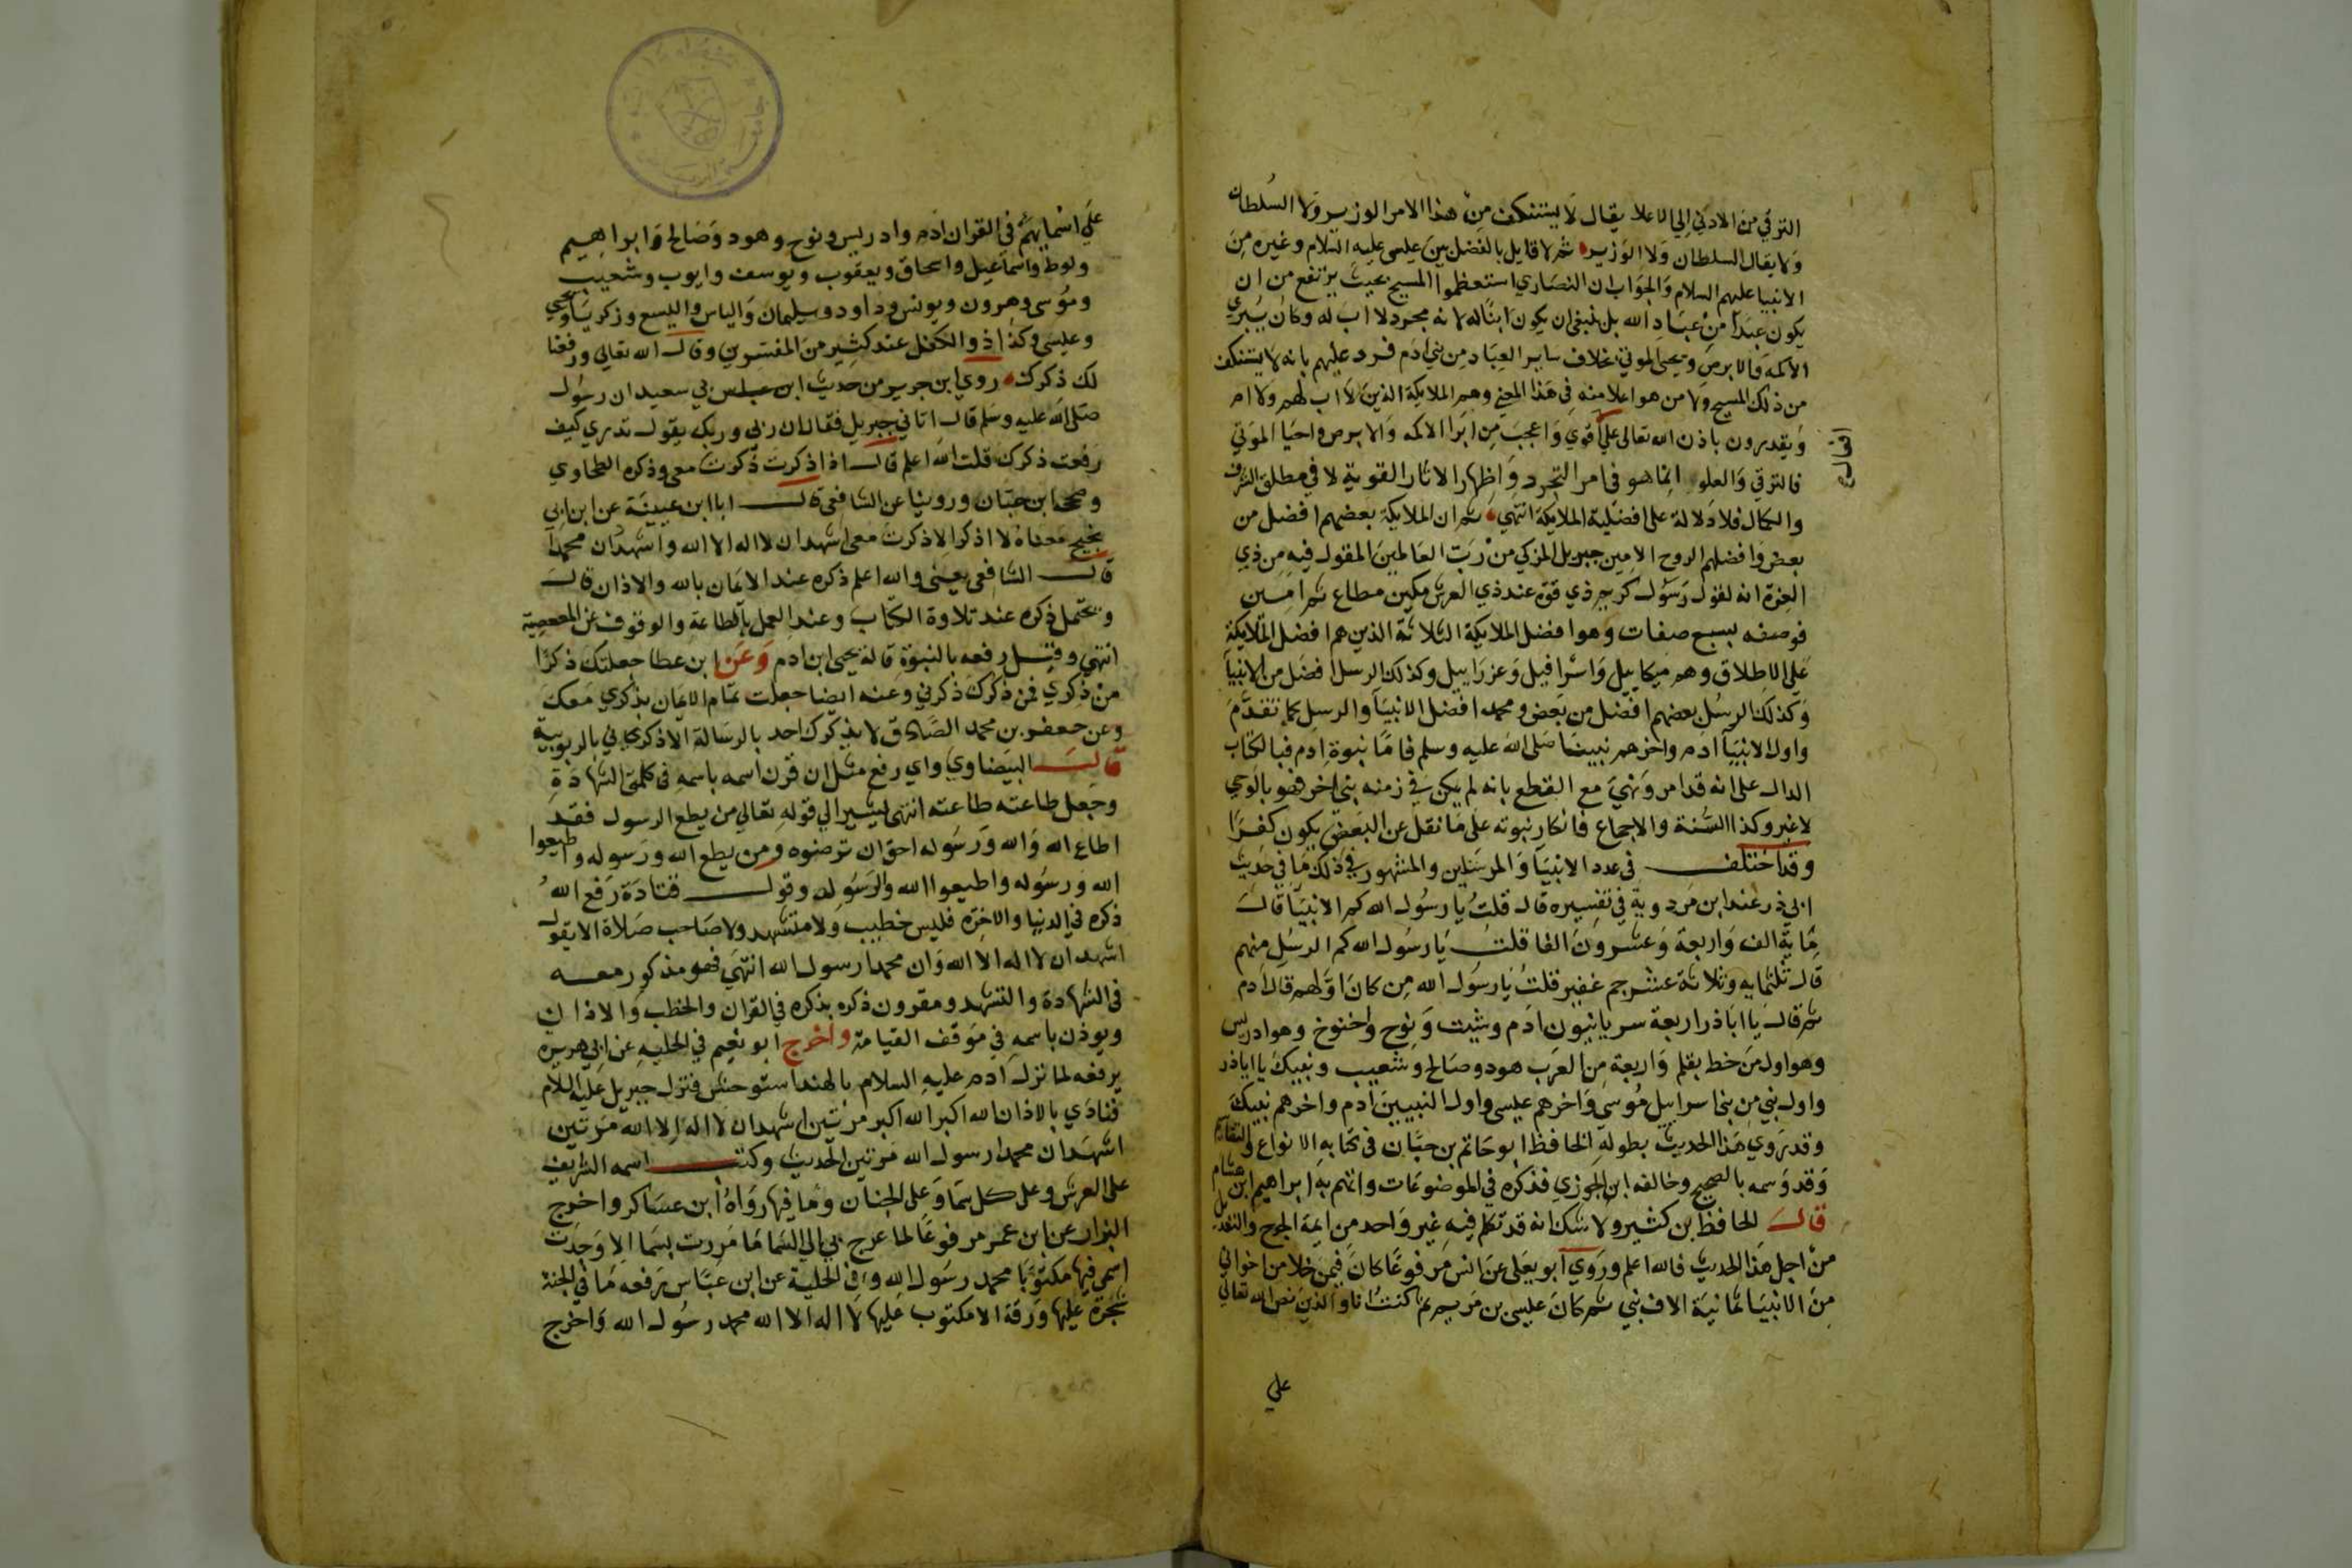 الترقي من الادني الي الاعلا يقال لا يستنكف من هذا الامر الوزير ولا السلطان
ولا يقال السلطان ولا الوزير ثم لا قايل بالفضل بين عيسى عليه السلام وغيره من
الانبيا عليهم السلام والجواب ان النصاري استعظموا المسيح بحيث يرتفع من ان
يكون عبدا من عباد الله بل ينبغي ان يكون ابنا له لانه مجرد لا اب له وكان يبري
الاكمه والابرص ويحيى الموتي بخلاف ساير العباد من بني ادم فرد عليهم بانه لا يستنكف
من ذلك المسيح ولا من هو اعلا منه في هذا المعني وهم الملايكة الذين لا اب لهم ولا ام
ويقدرون باذن الله تعالى على اقوي واعجب من ابرا الاكمه والابرص واحيا الموتي
افعال
فالترقي والعلو انما هو في امر التجرد واظهار الاثار القوية لا في مطلق الشرف
والكمال فلا دلالة على افضلية الملايكة انتهي ثم ان الملايكة بعضهم افضل من
بعض وافضلهم الروح الامين جبريل المزكي من رب العالمين المقول فيه من ذي
العزة انه لقول رسول كريم ذي قوة عند ذي العرش مكين مطاع ثم امين
فوصفه بسبع صفات وهو افضل الملايكة الثلاثة الذين هم افضل الملايكة
علي الاطلاق وهم ميكاييل واسرافيل وعزراييل وكذلك الرسل افضل من الانبيا
وكذلك الرسل بعضهم افضل من بعض ومحمد افضل الانبيا والرسل كما تقدم
واول الانبيا ادم واخرهم نبينا صلى الله عليه وسلم فاما نبوة ادم فبالكتاب
الدال على انه قد امر ونهي مع القطع بانه لم يكن في زمنه نبي اخر فهو بالوحي
لا غير وكذا السنة والاجماع فانكار نبوته على ما نقل عن البعض يكون كفرا
وقد اختلف في عدد الانبيا والمرسلين والمشهور في ذلك ما في حديث
ابي ذر عند ابن مردوية في تفسيره قال قلت يا رسول الله كم الانبيا قال
ماية الف واربعة وعشرون الفا قلت يا رسول الله كم الرسل منهم
قال ثلثماية وثلاثة عشر جم غفير قلت يا رسول الله من كان اولهم قال ادم
ثم قال يا ابا ذر اربعة سريانيون ادم وشيت ونوح واخنوخ وهو ادريس
وهو اول من خط بقلم واربعة من العرب هود وصالح وشعيب ونبيك يا ابا ذر
واول نبي من بنى اسراييل موسى واخرهم عيسى واول النبيين ادم واخرهم نبيك
وقد روي هذا الحديث بطوله الحافظ ابو حاتم بن حبان في كتابه الانواع والتقاسيم
وقد وسمه بالصحيح وخالفه ابن الجوزي فذكره في الموضوعات واتهم به ابراهيم ابن هشام
قال الحافظ بن كثير ولا شك انه قد تكلم فيه غير واحد من ايمة الجرح والتعديل
من اجل هذا الحديث فالله اعلم وروي ابو يعلى عن انس مرفوعا كان فيمن خلا من اخواني
من الانبيا ثمانية الاف نبي ثم كان عيسى بن مريم ثم كنت انا والذين نص الله تعالي
علي
علي اسمايهم في القران ادم وادريس ونوح وهود وصالح وابراهيم
ولوط واسماعيل واسحاق ويعقوب ويوسف وايوب وشعيب
وموسى وهرون ويونس وداود وسليمان والياس واليسع وزكريا ويحيي
وعيسى وكذا ذو الكفل عند كثير من المفسرين وقال الله تعالي ورفعنا
لك ذكرك روي ابن جرير من حديث ابي سعيد ان رسول
صلى الله عليه وسلم قال اتاني جبريل فقال ان ربي وربك يقول تدري كيف
رفعت ذكرك قلت الله اعلم قال اذا ذكرت ذكرت معي وذكره الطحاوي
وصححه ابن حبان وروينا عن الشافعي قال انا ابن عيينة عن ابن ابي
نجيح معناه لا اذكر الا ذكرت معي اشهد ان لا اله الا الله واشهد ان محمدا
قال الشافعي يعني والله اعلم ذكره عند الايمان بالله والاذان قال
ويحتمل ذكره عند تلاوة الكتاب وعند العمل بالطاعة والوقوف عن المعصية
انتهي وقيل رفعه بالنبوة قاله يحيى ابن ادم وعن ابن عطا جعلتك ذكرا
من ذكري فمن ذكرك ذكرني وعنه ايضا جعلت تمام الايمان بذكري معك
وعن جعفر بن محمد الصادق لا يذكرك احد بالرسالة الا ذكرني بالربوبية
قال البيضاوي واي رفع مثل ان قرن اسمه باسمه في كلمتي الشهادة
وجعل طاعته طاعته انتهي يشير الي قوله تعالي من يطع الرسول فقد
اطاع الله والله ورسوله احق ان ترضوه ومن يطع الله ورسوله واطيعوا
الله ورسوله واطيعوا الله والرسول وقول قتادة رفع الله
ذكره في الدنيا والاخرة فليس خطيب ولا متشهد ولا صاحب صلاة الا يقول
اشهد ان لا اله الا الله وان محمدا رسول الله انتهي فهو مذكور معه
في الشهادة والتشهد ومقرون ذكره بذكره في القران والخطب والاذان
ويوذن باسمه في موقف القيامة واخرج ابو نعيم في الحلية عن ابي هريرة
يرفعه لما نزل ادم عليه السلام بالهند استوحش فنزل جبريل عليه السلام
فنادي بالاذان الله اكبر الله اكبر مرتين اشهد ان لا اله الا الله مرتين
اشهد ان محمدا رسول الله مرتين الحديث وكتب اسمه الشريف
على العرش وعلى كل سما وعلى الجنان وما فيها رواه ابن عساكر واخرج
البزار عن ابن عمر مرفوعا لما عرج بي الي السما ما مررت بسما الا وجدت
اسمي فيها مكتوبا محمد رسول الله وفي الحلية عن ابن عباس يرفعه ما في الجنة
شجرة عليها ورقة الا مكتوب عليها لا اله الا الله محمد رسول الله واخرج